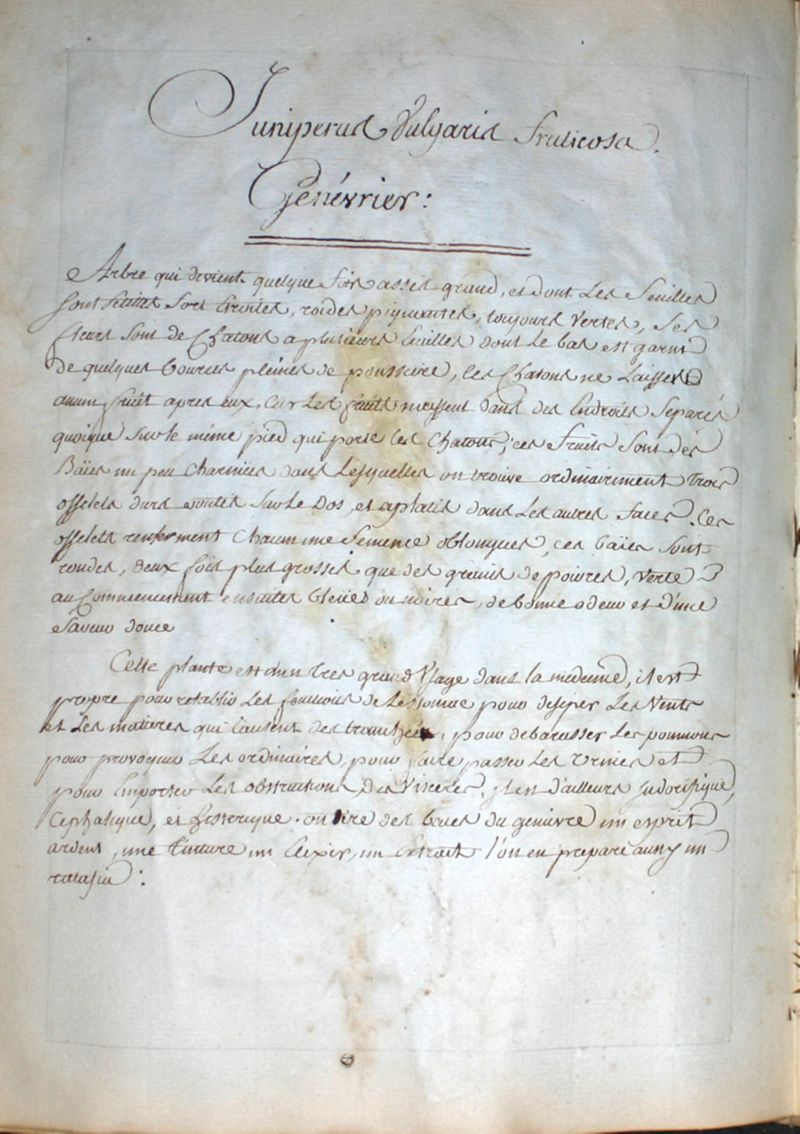 Juniperus Vulgaris fruticosa.
Genévrier:
Arbre qui devient quelque fois assés grand, et dont Les feuilles
sont fort Etroites, roides piquantes, toujours vertes, Ses
fleurs sont de Chatons a plusieurs Ecailles dont le bas est garni
de quelques bources pleines de poussiere, Les Chatons ne Laissent
aucun fruit apres eux, Car Les fruits naissent dans des Endroits Separés
quoique sur le même pied qui porte les Chatons, ces fruits Sont des
Baïes un peu charnües dans Lesquelles on trouve ordinairement Trois
osselets durs voutés sur Le Dos, et aplatis dans Les autres faces. Ces
osselets renferment Chacun une semence oblongues, ces baïes sont
rondes, deux fois plus grosses que des grains de poivres, verte
au Commencement ensuites bleües ou noires, de bonne odeur et d'une
Saveur douce
Cette plante est d'un Tres grand Usage dans la medecine, il est
propre pour retablir Les fonctions de Lestomac pour dissiper Les Vents
et Les matieres qui Causent des tranchées, pour debarasser Les poumons
pour provoquer Les ordinaires, pour faire passer Les Urines et
pour Emporter Les obstructions des Visceres, il est d'ailleurs sudorifique,
Cephalique, et histerique. on tire des baies du genievre un esprit
ardent, une Tinture un Elixir, un Extrait l'on en prepare aussy un
ratafia: